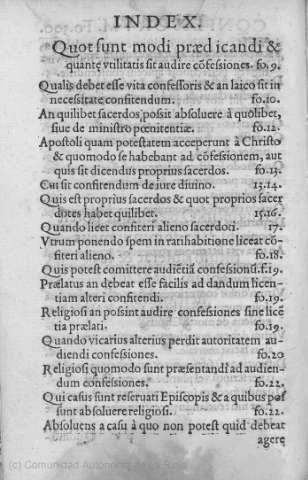 INDEX.
Quot sunt modi præd icandi &
quantę vtilitatis sit audire cõfessiones. fo. 9.
Qualis debet esse vita confessoris & an laico sit in
necessitate confitendum. fo.10.
An quilibet sacerdos possit absoluere à quolibet,
siue de ministro pœnitentiæ. fo.12.
Apostoli quam potestatem acceperunt à Christo
& quomodo se habebant ad cõfessionem, aut
quis sit dicendus proprius sacerdos. fo.13.
Cui sit confitendum de iure diuino. 13.14.
Quis est proprius sacerdos & quot proprios sacer
dotes habet quilibet. 15.16.
Quando licet confiteri alieno sacerdoti. 17.
Vtrum ponendo spem in ratihabitione liceat cõ-
fiteri alieno. fo.18.
Quis potest comittere audiẽtiã confessionũ.f.19.
Prælatus an debeat esse facilis ad dandum licen-
tiam alteri confitendi. fo.19.
Religiosi an possint audire confessiones sine licẽ
tia prælati. fo.19.
Quando vicarius alterius perdit autoritatem au-
diendi confessiones. fo.20
Religiosi quomodo sunt præsentandi ad audien-
dum confessiones. fo.22.
Qui casus sunt reseruati Episcopis & a quibus pos
sunt absoluere religiosi. fo.22.
Absolutus a casu à quo non potest quid debeat
agere
(c) Comunidad Autónoma de La Rioja